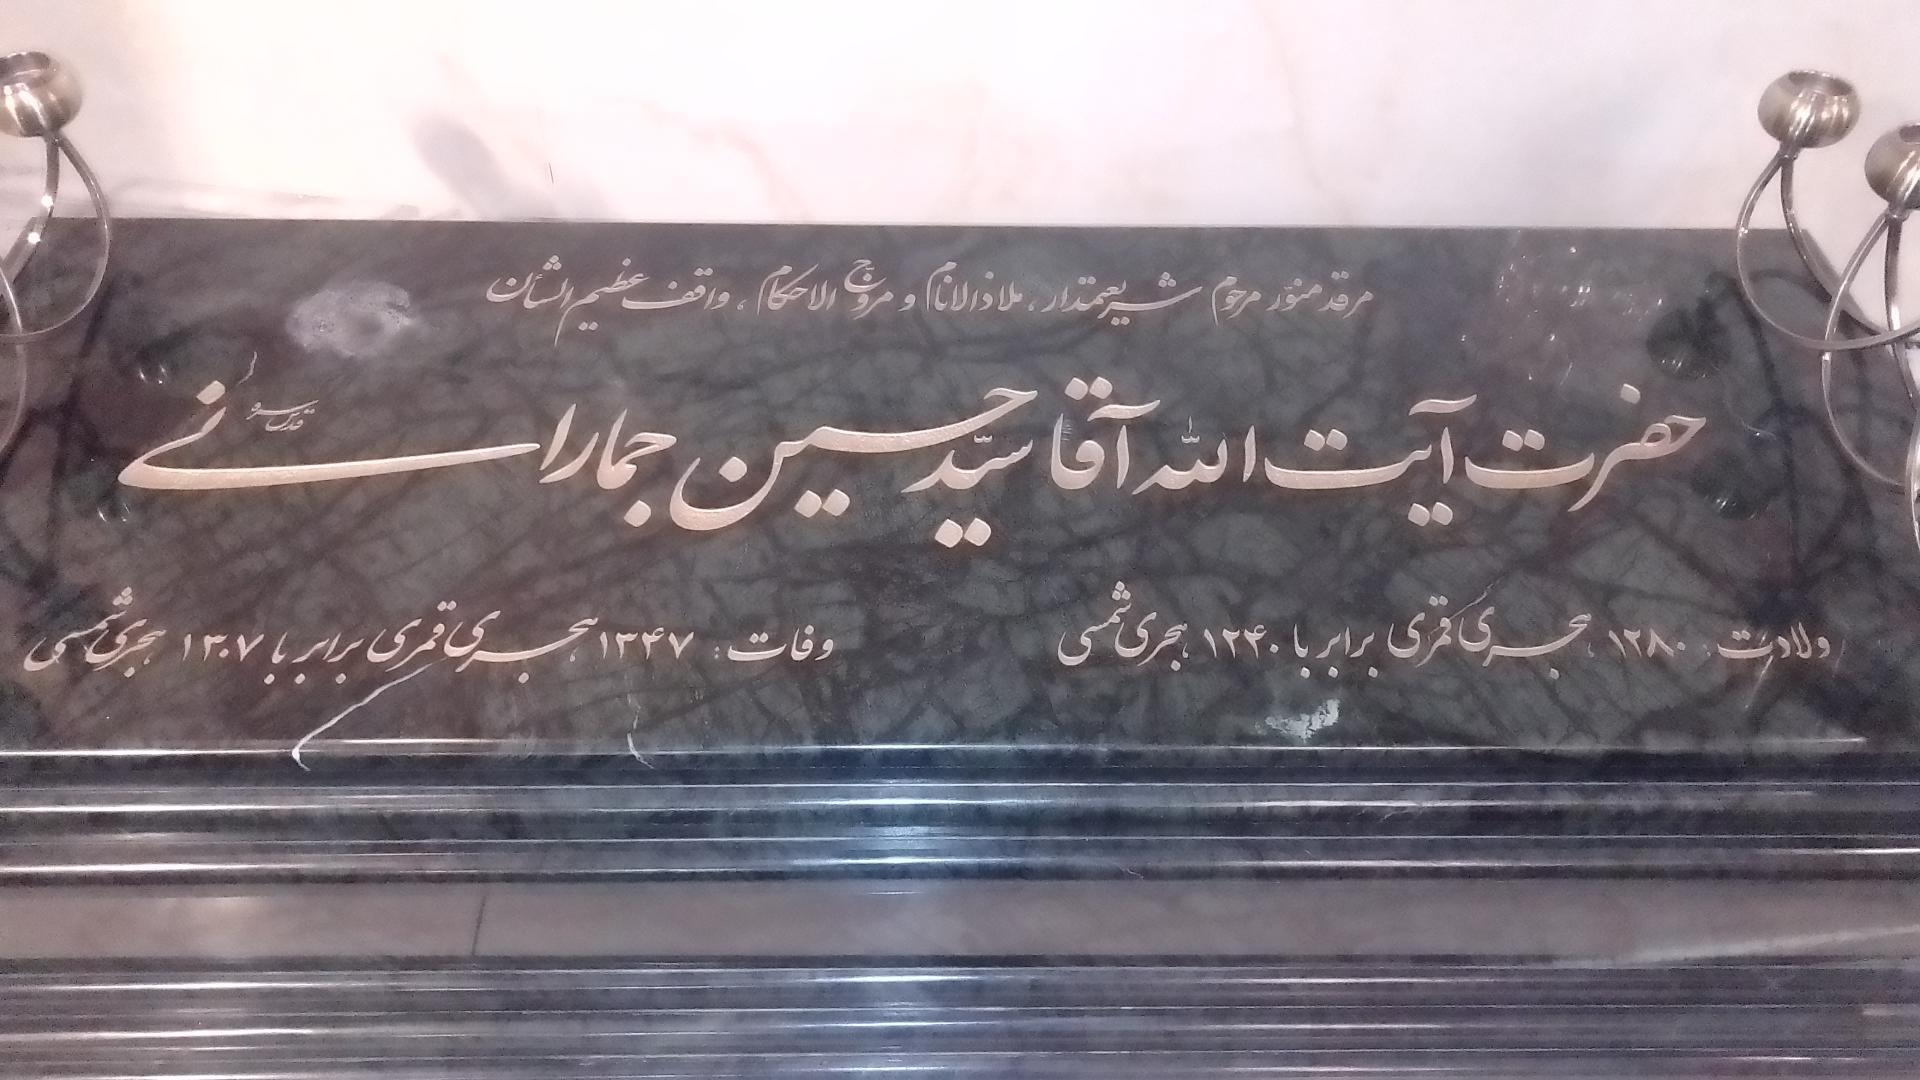 مرقد منوّر مرحوم شریعتمدار، ملاذ الانام و مروّج الاحکام، واقف عظیم الشأن
حضرت آیت الله آقا سیّد حسین جمارانی قدّس سرّه
ولادت: ۱۲۸۰ هجری قمری برابر با ۱۲۴۰ هجری شمسی
وفات: ۱۳۴۷ هجری قمری برابر با ۱۳۰۷ هجری شمسی